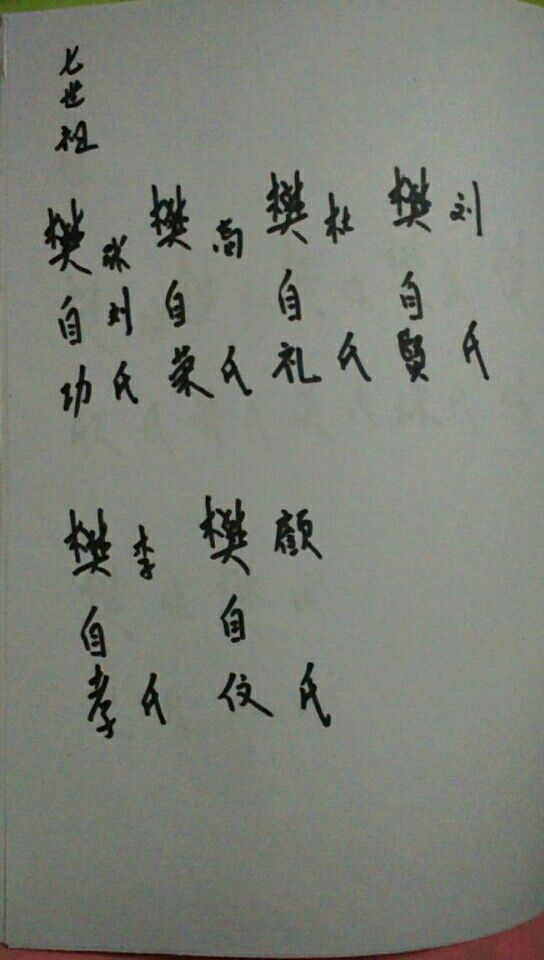 七世祖
樊自功 张刘氏
樊自荣 高氏
樊自礼 杜氏
樊自贤 刘氏
樊自孝 李氏
樊自仪 顾氏